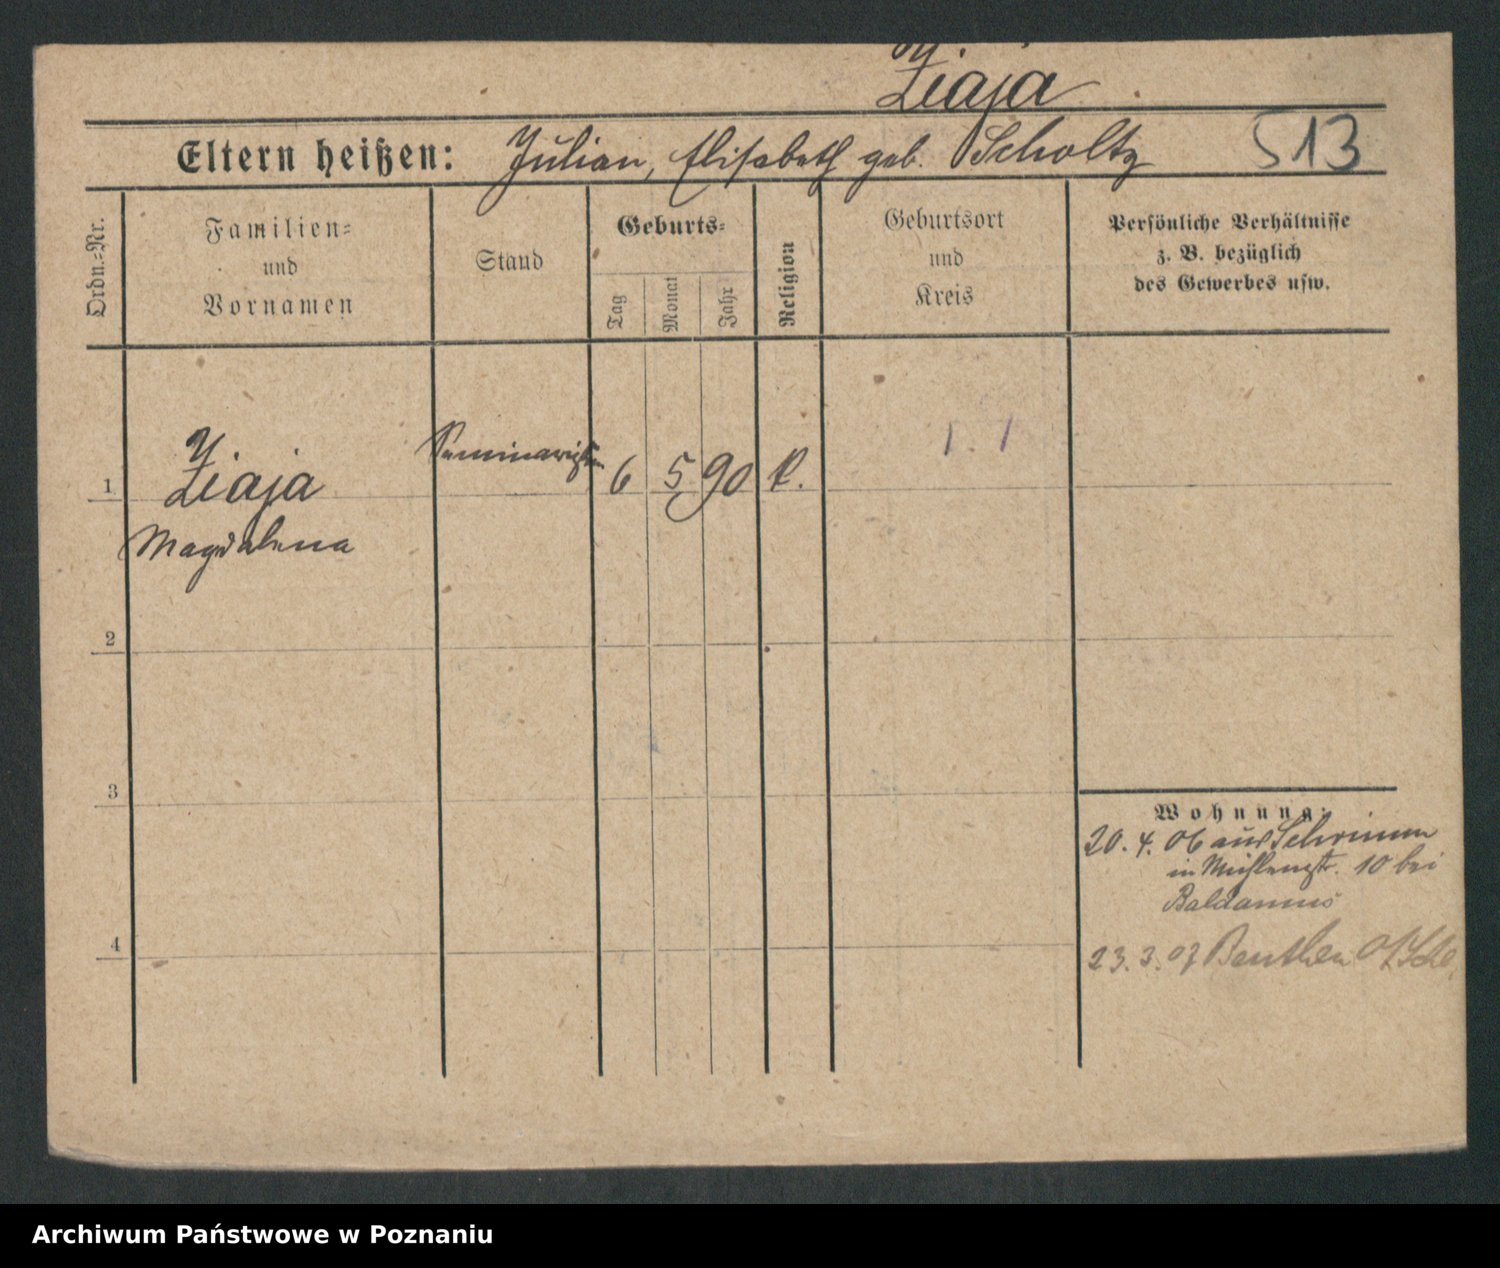 Ziaja
Eltern heißen: Julian, Elisabeth geb. Scholtz 513
Ordn.-Nr.
Familien-
und
Vornamen
Stand
Geburts-
Tag
Monat
Jahr
Religion
Geburtsort
und
Kreis
Persönliche Verhältnisse
z. B. bezüglich
des Gewerbes usw.
1 Ziaja Seminaristin 6 5 90 k.
Magdalena
2
3
4
Wohnung:
20. 4. 06 aus Schrimm
in Mühlenstr. 10 bei
Baldamus
23. 3. 07 Beuthen O/Schl.
Archiwum Państwowe w Poznaniu